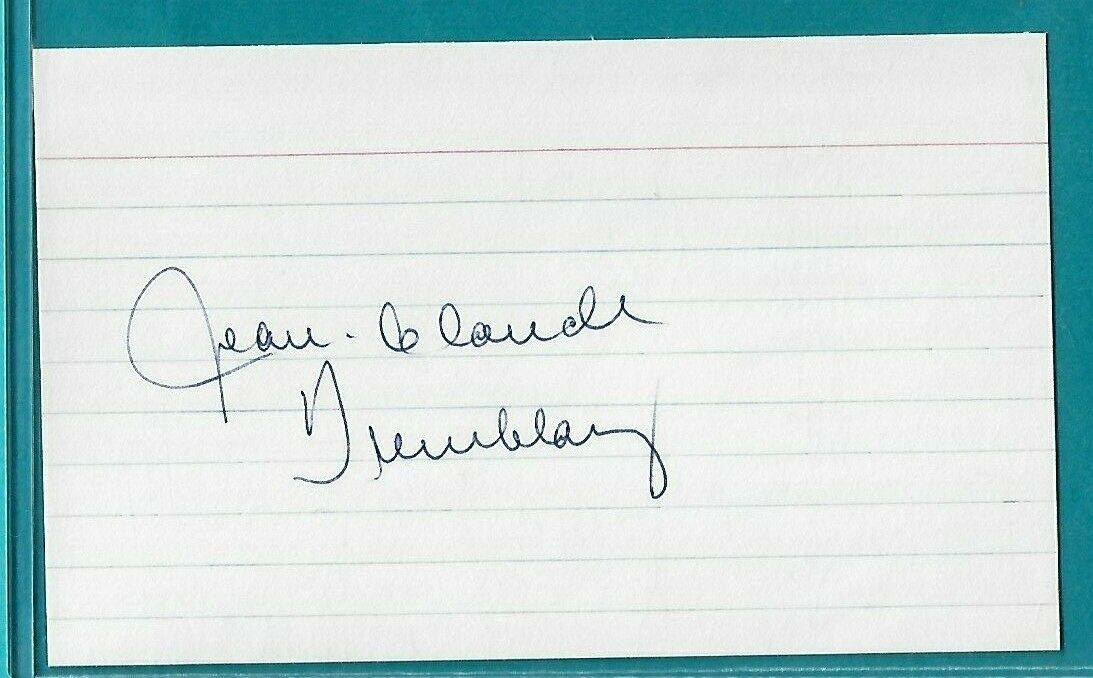 Jean-Claude
Tremblay